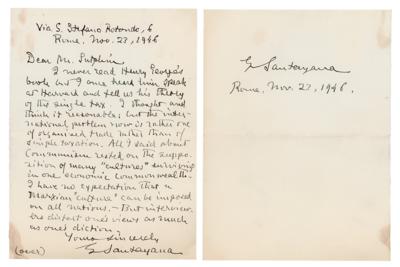 Via S. Stefano Rotondo, 6
Rome, Nov. 23, 1946
Dear Mr. Sutphin
I never read Henry George's
book but I once heard him speak
at Harvard and tell us his theory
of the single tax. I thought and
think it reasonable; but the inter-
national problem now is rather one
of organised trade rather than of
simple taxation. All I said about
Communism rested on the suppo-
sition of many "cultures" surviving
in one economic commonwealth:
I have no expectation that a
Marxian "culture" can be imposed
on all nations. — But interview-
ers distort one's views as much
as one's diction
Yours sincerely
(over) G Santayana
G Santayana
Rome, Nov. 23, 1946.